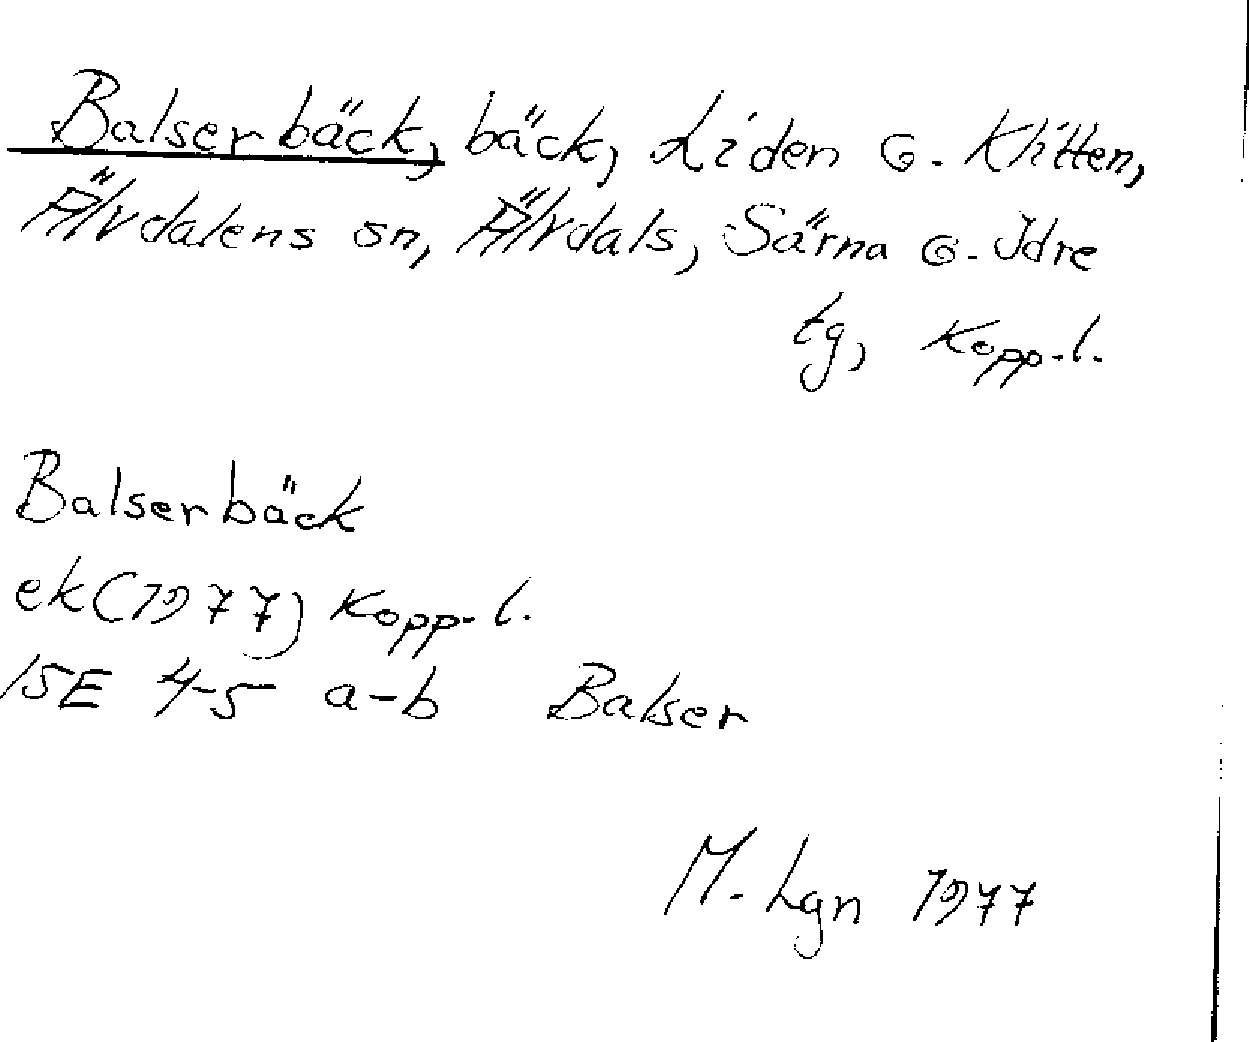 Balserbäck, bäck, Liden o. Klitten,
Älvdalens sn, Älvdals, Särna o. Idre
tg, Kopp.l.
Balserbäck
ek (1977) Kopp.l.
15E 4-5 a-b Balser
M. Lgn 1977